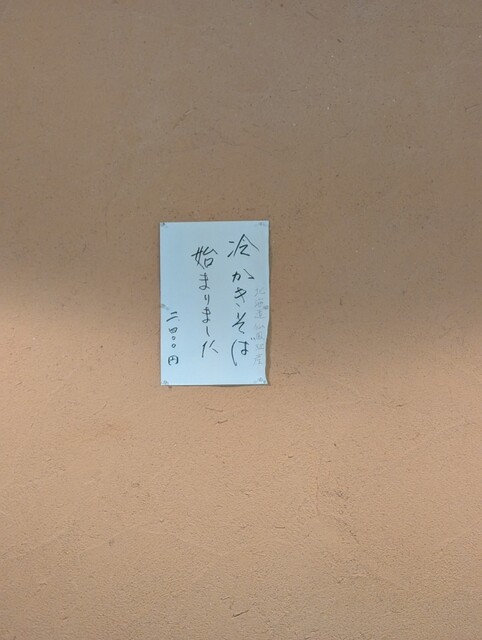 北海道仙鳳趾産
冷かきそば
始まりました
二、四〇〇円